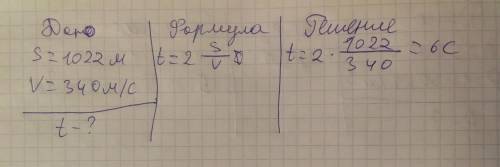 Дано
S = 1022 м
V = 340 м/с
t - ?
Формула
t = 2 S/V
Решение
t = 2 · 1022/340 = 6 с